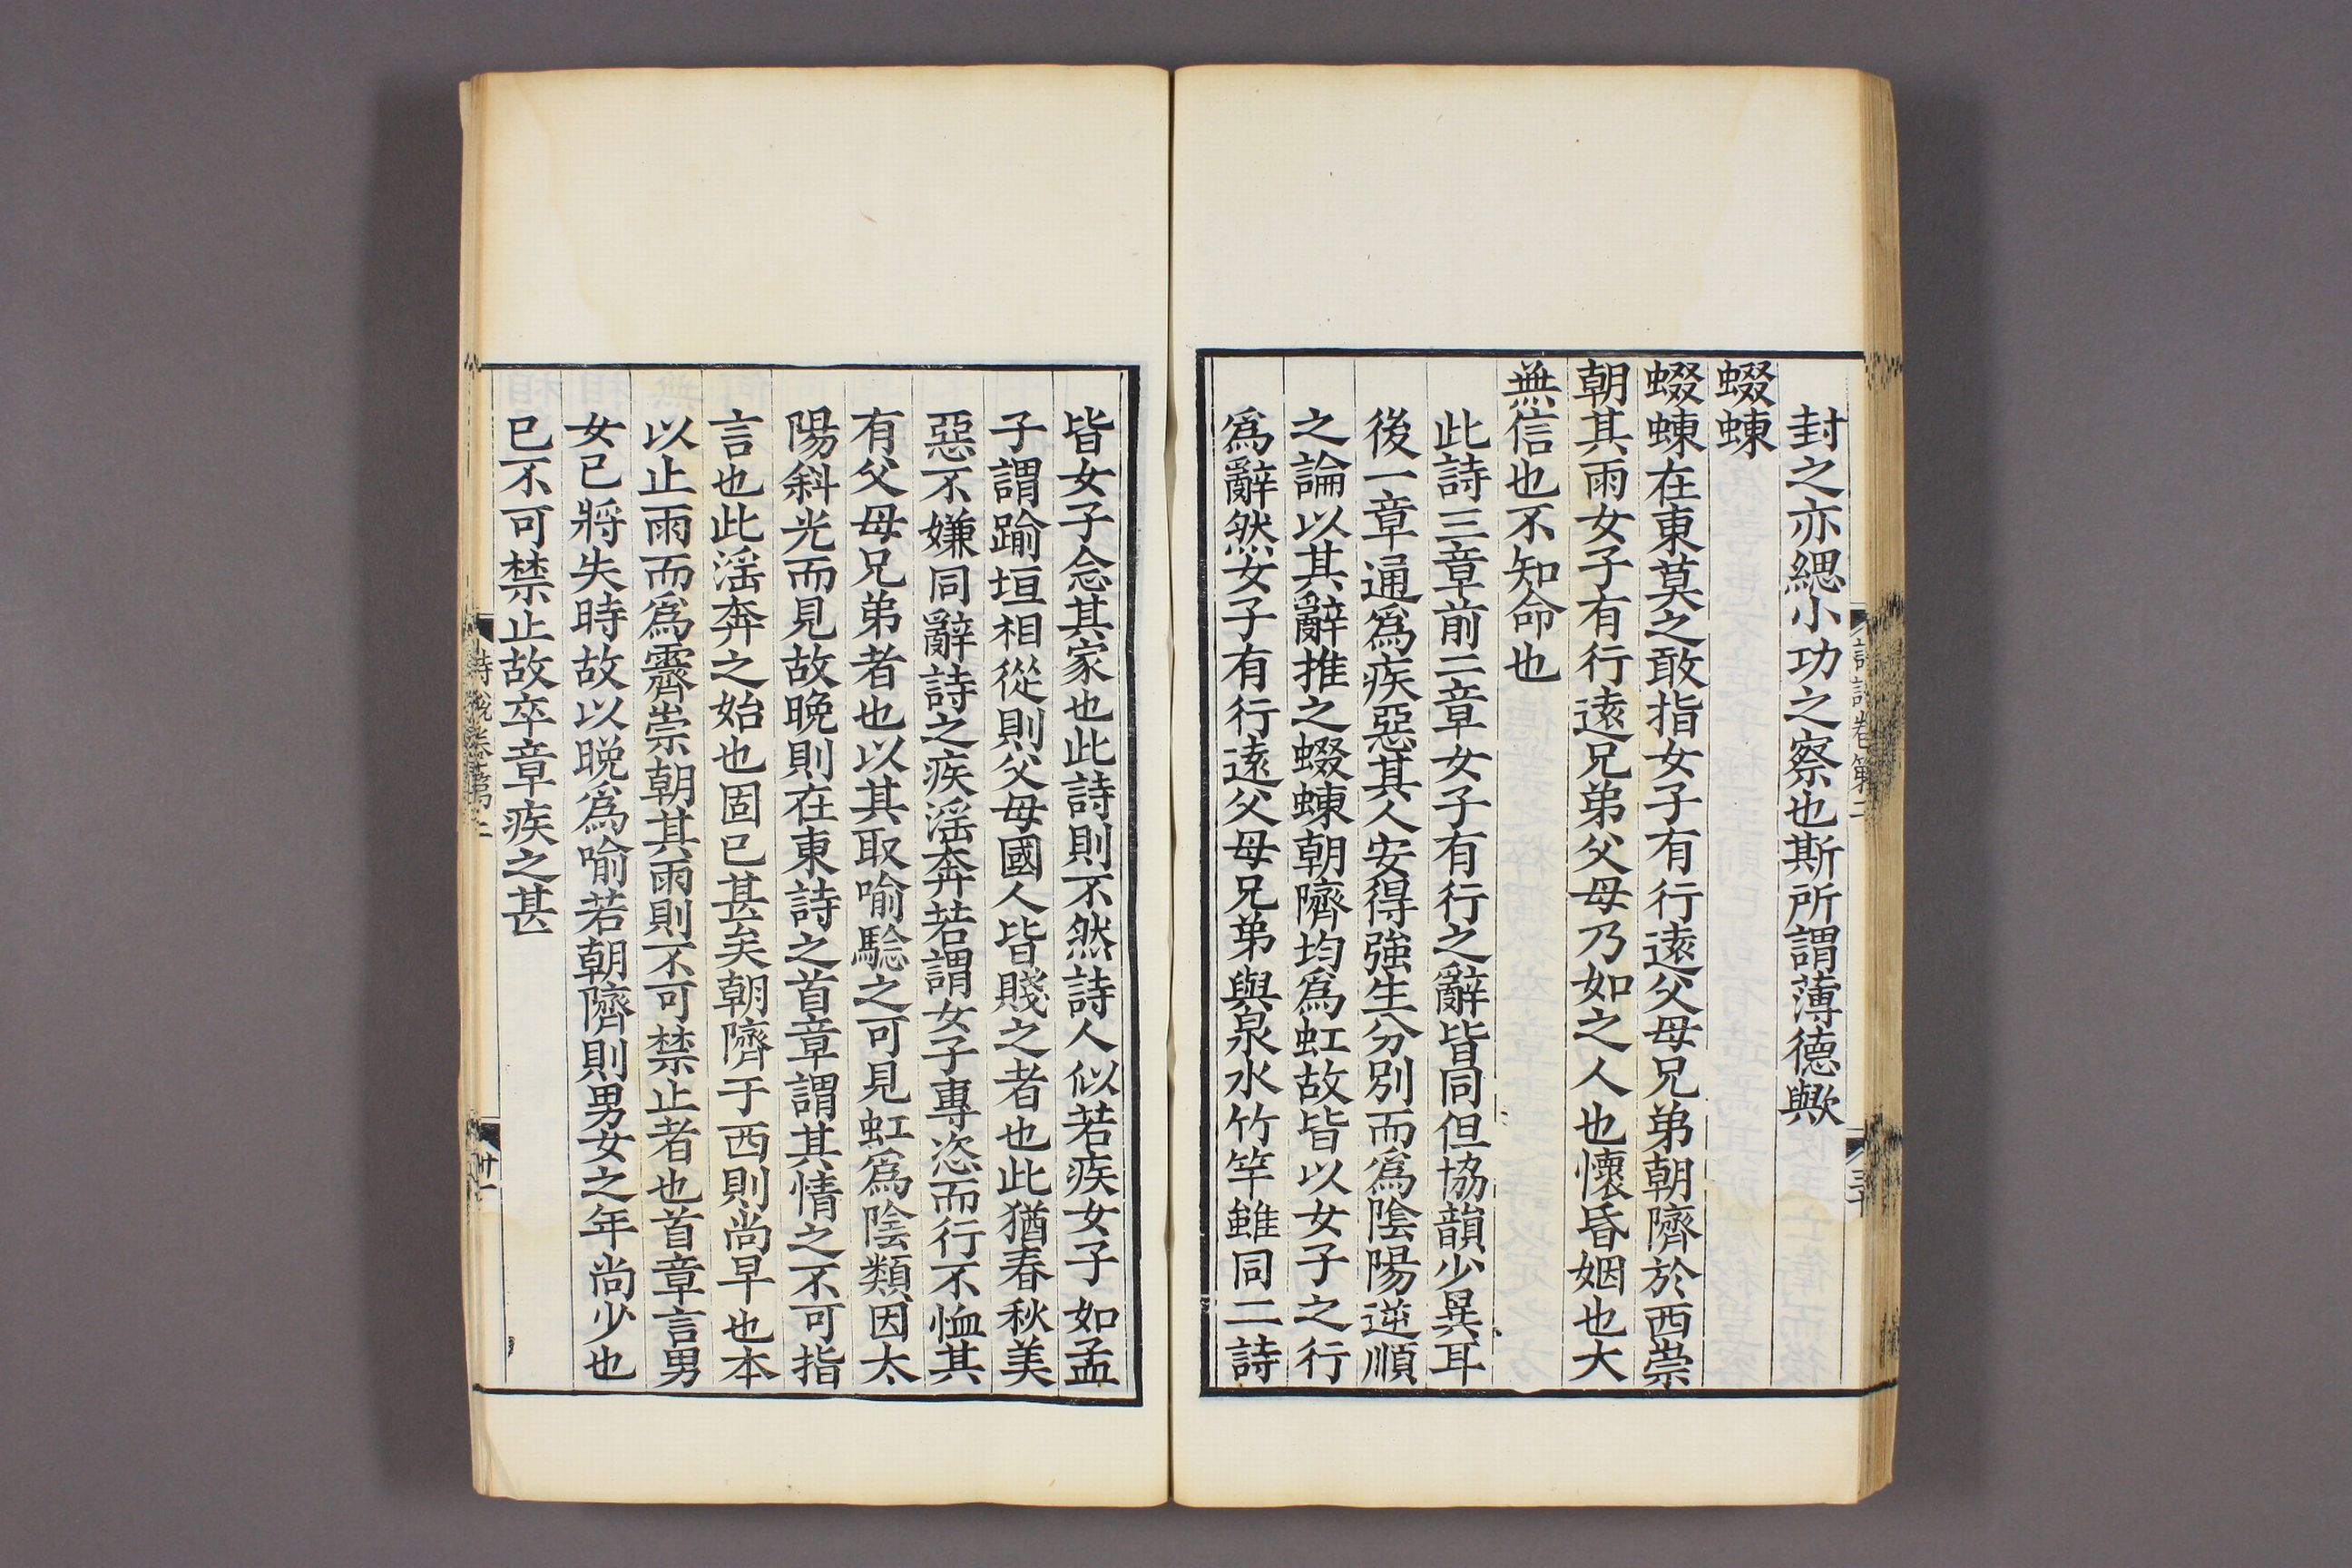 封之亦緦小功之察也斯所謂薄德歟
蝃蝀
蝃蝀在東莫之敢指女子有行遠父母兄弟朝隮於西崇
朝其雨女子有行遠兄弟父母乃如之人也懷昏姻也大
無信也不知命也
此詩三章前二章女子有行之辭皆同但協韻少異耳
後一章通爲疾惡其人安得強生分別而爲陰陽逆順
之論以其辭推之蝃蝀朝隮均爲虹故皆以女子之行
爲辭然女子有行遠父母兄弟與泉水竹竿雖同二詩
皆女子念其家也此詩則不然詩人似若疾女子如孟
子謂踰垣相從則父母國人皆賤之者也此猶春秋美
惡不嫌同辭詩之疾淫奔若謂女子專恣而行不恤其
有父母兄弟者也以其取喻驗之可見虹爲陰類因太
陽斜光而見故晚則在東詩之首章謂其情之不可指
言也此淫奔之始也固已甚矣朝隮于西則尚早也本
以止雨而爲霽崇朝其雨則不可禁止者也首章言男
女已將失時故以晚爲喻若朝隮則男女之年尚少也
已不可禁止故卒章疾之甚
詩說卷第二
三十
詩說卷第二
卅一